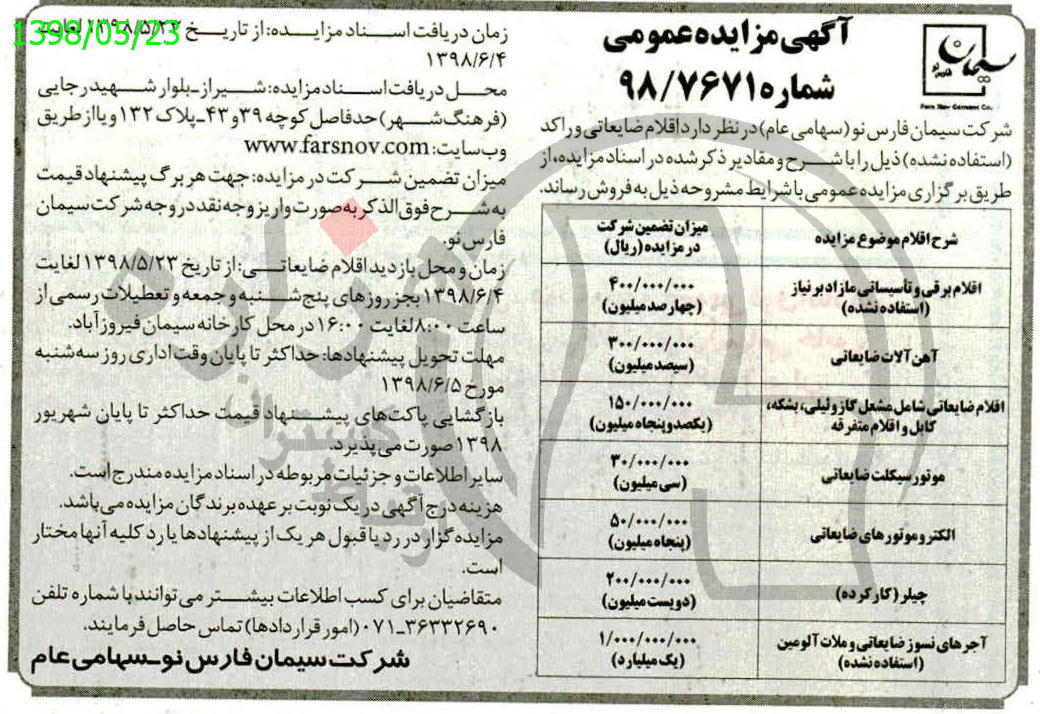 1398/05/23
سیمان
فارس نو
Fars Nov Cement Co.
آگهی مزایده عمومی
شماره ۹۸/۷۶۷۱
شرکت سیمان فارس نو (سهامی عام) در نظر دارد اقلام ضایعاتی و راکد
(استفاده نشده) ذیل را با شرح و مقادیر ذکر شده در اسناد مزایده، از
طریق برگزاری مزایده عمومی با شرایط مشروحه ذیل به فروش رساند.
شرح اقلام موضوع مزایده
میزان تضمین شرکت
در مزایده (ریال)
اقلام برقی و تأسیساتی مازاد بر نیاز
(استفاده نشده)
۴۰۰/۰۰۰/۰۰۰
(چهارصد میلیون)
آهن آلات ضایعاتی
۳۰۰/۰۰۰/۰۰۰
(سیصد میلیون)
اقلام ضایعاتی شامل مشعل گازوئیلی، بشکه،
کابل و اقلام متفرقه
۱۵۰/۰۰۰/۰۰۰
(یکصد و پنجاه میلیون)
موتور سیکلت ضایعاتی
۳۰/۰۰۰/۰۰۰
(سی میلیون)
الکتروموتورهای ضایعاتی
۵۰/۰۰۰/۰۰۰
(پنجاه میلیون)
چیلر (کارکرده)
۲۰۰/۰۰۰/۰۰۰
(دویست میلیون)
آجرهای نسوز ضایعاتی و ملات آلومین
(استفاده نشده)
۱/۰۰۰/۰۰۰/۰۰۰
(یک میلیارد)
زمان دریافت اسناد مزایده: از تاریخ ۱۳۹۸/۵/۲۳ لغایت
۱۳۹۸/۶/۴
محل دریافت اسناد مزایده: شیراز ـ بلوار شهید رجایی
(فرهنگ شهر) حدفاصل کوچه ۳۹ و ۴۳ ـ پلاک ۱۳۲ و یا از طریق
وب سایت: www.farsnov.com
میزان تضمین شرکت در مزایده: جهت هر برگ پیشنهاد قیمت
به شرح فوق الذکر به صورت واریز وجه نقد در وجه شرکت سیمان
فارس نو.
زمان و محل بازدید اقلام ضایعاتی: از تاریخ ۱۳۹۸/۵/۲۳ لغایت
۱۳۹۸/۶/۴ بجز روزهای پنج شنبه و جمعه و تعطیلات رسمی از
ساعت ۸:۰۰ لغایت ۱۶:۰۰ در محل کارخانه سیمان فیروزآباد.
مهلت تحویل پیشنهادها: حداکثر تا پایان وقت اداری روز سه شنبه
مورخ ۱۳۹۸/۶/۵
بازگشایی پاکت های پیشنهاد قیمت حداکثر تا پایان شهریور
۱۳۹۸ صورت می پذیرد.
سایر اطلاعات و جزئیات مربوطه در اسناد مزایده مندرج است.
هزینه درج آگهی در یک نوبت بر عهده برندگان مزایده می باشد.
مزایده گزار در رد یا قبول هر یک از پیشنهادها یا رد کلیه آنها مختار
است.
متقاضیان برای کسب اطلاعات بیشتر می توانند با شماره تلفن
۳۶۳۳۲۶۹۰ـ۰۷۱ (امور قراردادها) تماس حاصل فرمایند.
شرکت سیمان فارس نو ـ سهامی عام